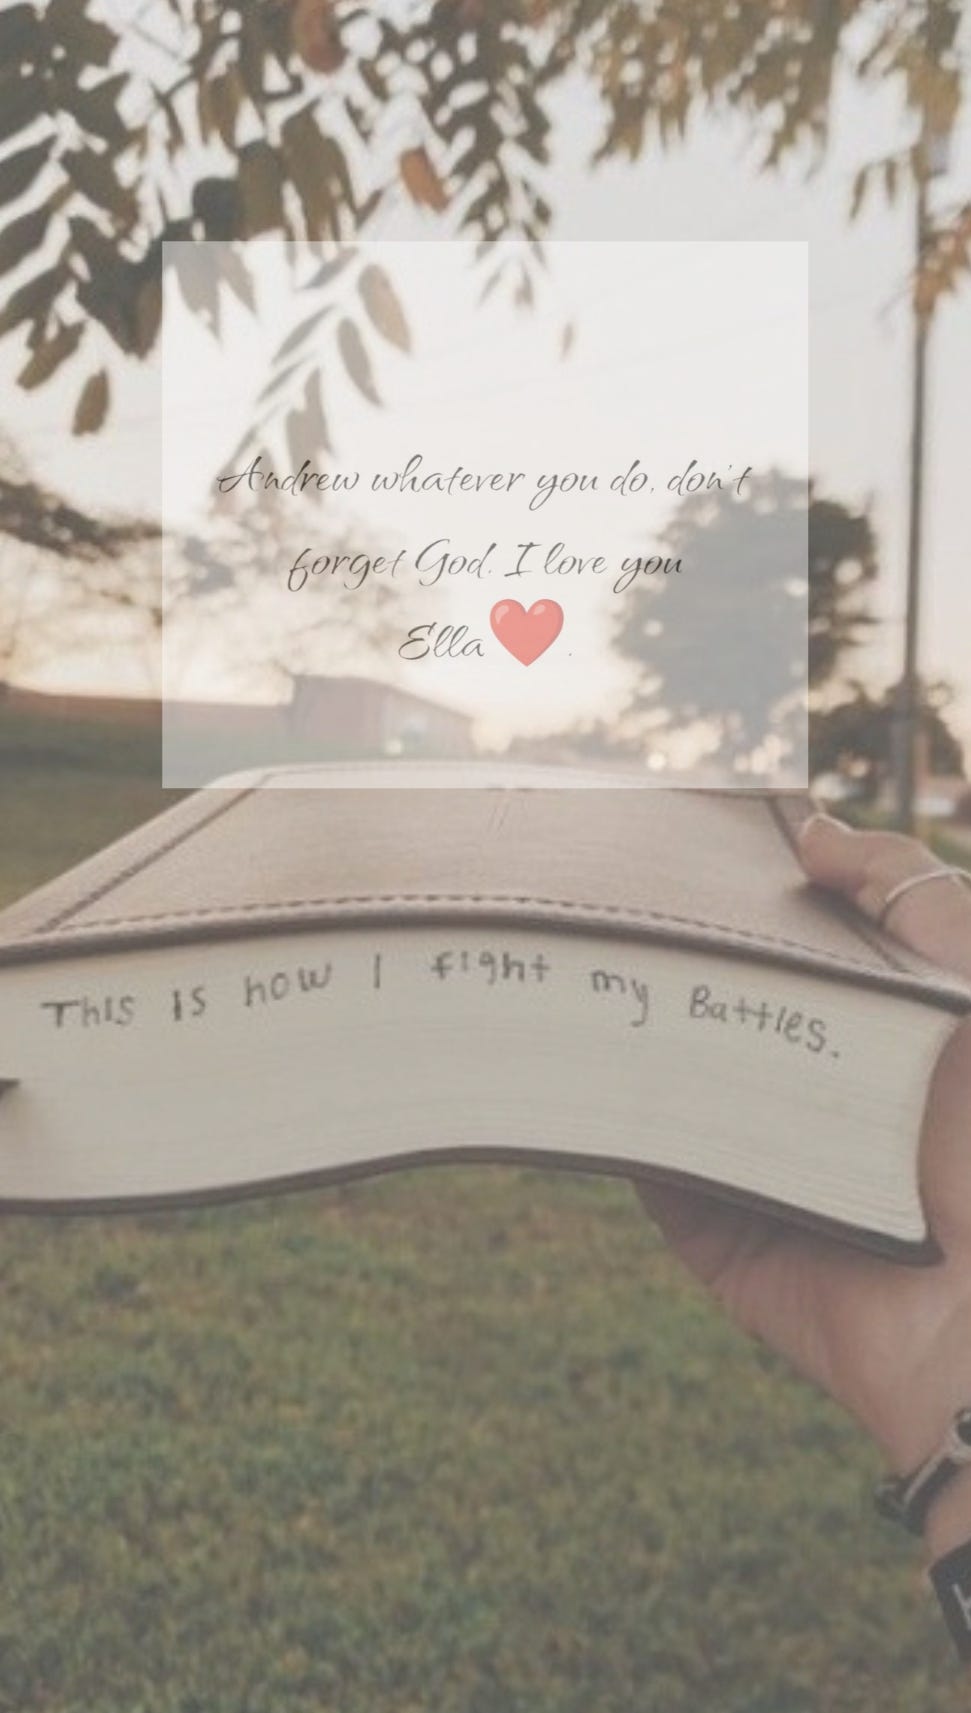 Andrew whatever you do, don't
forget God. I love you
Ella❤️.
This is how I fight my Battles.